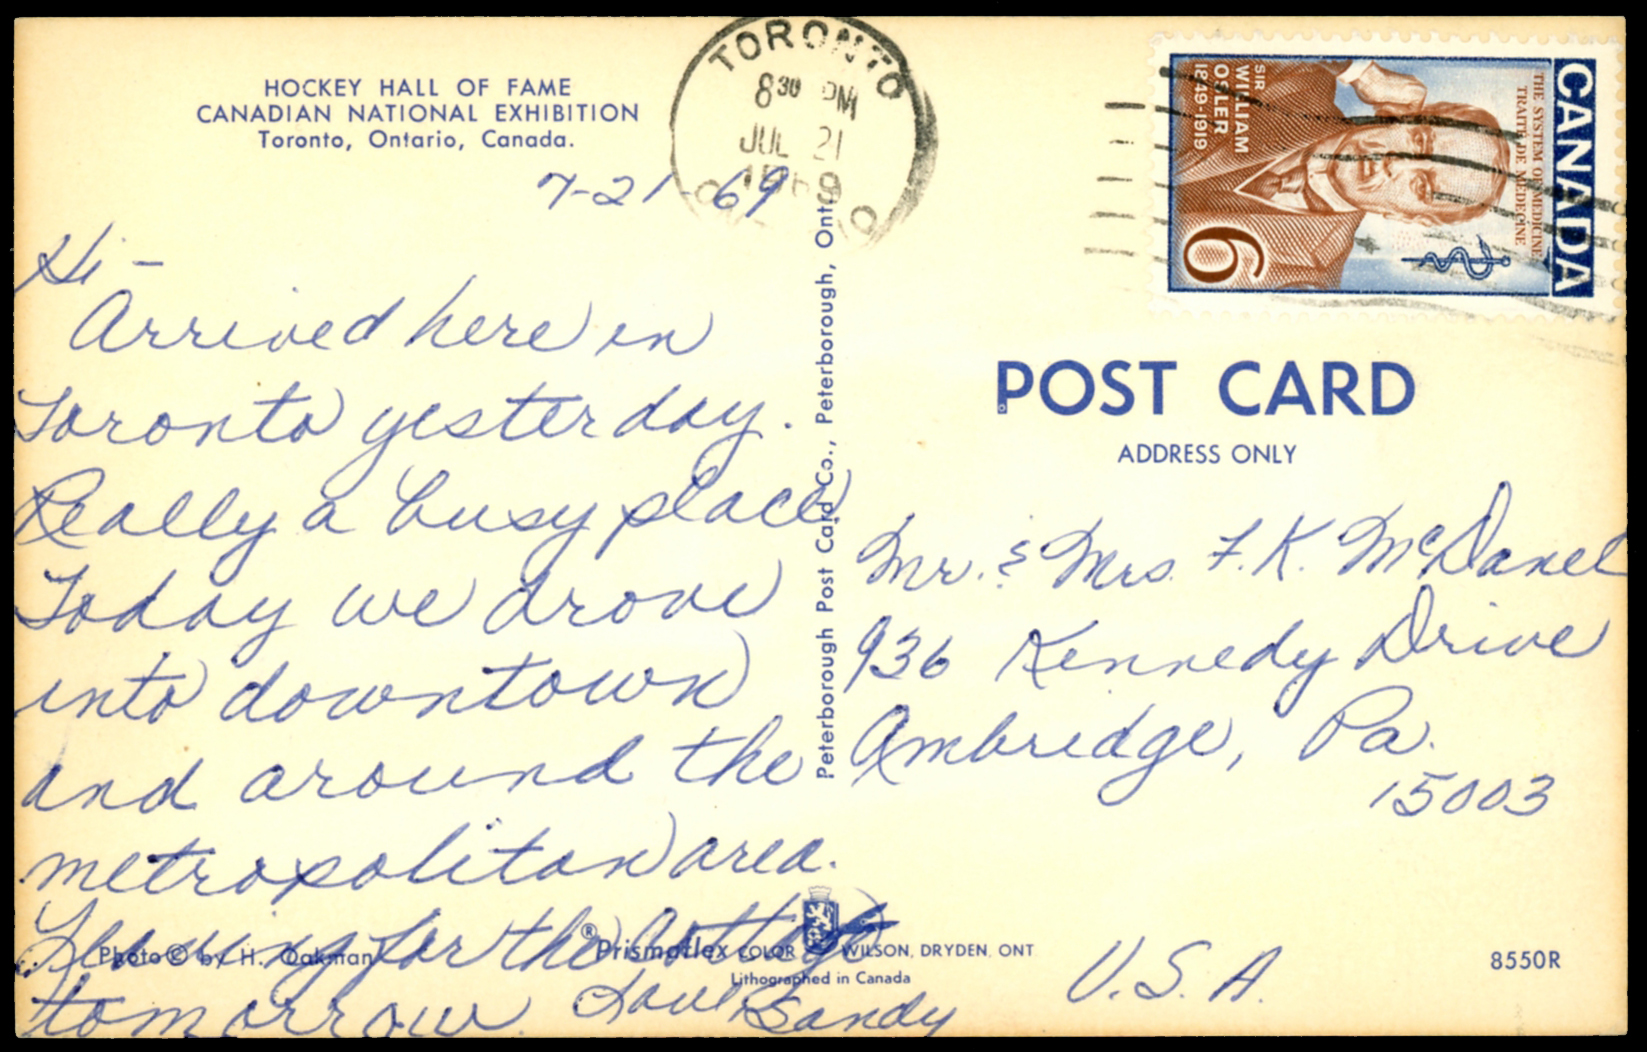 HOCKEY HALL OF FAME
CANADIAN NATIONAL EXHIBITION
Toronto, Ontario, Canada.
7-21-69
Hi -
Arrived here in
Toronto yesterday.
Really a busy place
Today we drove
into downtown
and around the
metropolitan area.
Leaving for the cottage
tomorrow. Love Sandy
Photo © by H. Oakman
Peterborough Post Card Co., Peterborough, Ont.
®Prismaflex COLOR WILSON, DRYDEN, ONT
Lithographed in Canada
TORONTO
8 30 PM
JUL 21
1969
CANADA
THE SYSTEM OF MEDICINE
TRAITÉ DE MÉDECINE
SIR
WILLIAM
OSLER
1849-1919
6
POST CARD
ADDRESS ONLY
Mr. & Mrs. F. K. McDanel
936 Kennedy Drive
Ambridge, Pa.
15003
U.S.A.
8550R